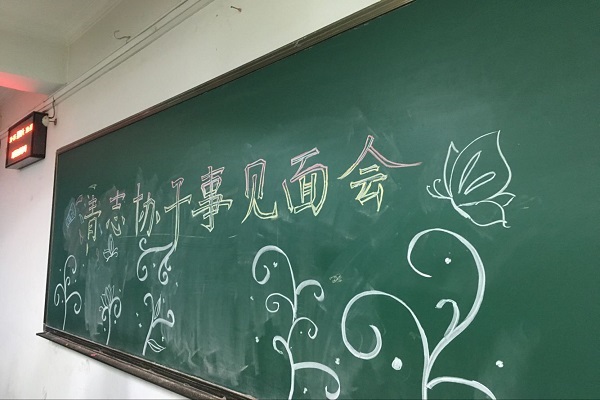 清志协干事见面会